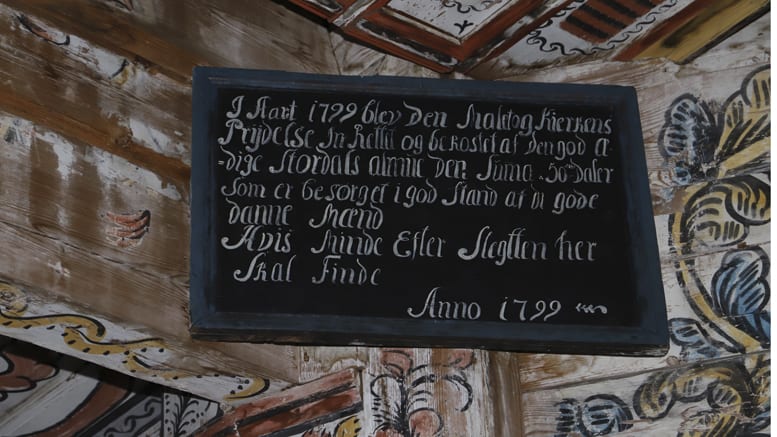 I Aart 1799 blev Den Maletog Kierkens
Prÿdelse In Rettit og bekostet af Den god A
=dige Stordals almue Den Suma .50 Daler
som er besørget i god Stand af di gode
danne Mænd
Hvis Minde Efter Slegtten her
Skal Finde
Anno 1799